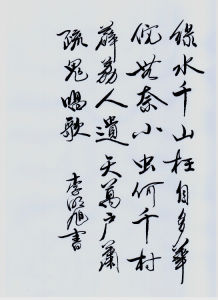 绿水千山枉自多华
佗无奈小虫何千村
薜荔人遗矢萬户蕭
疏鬼唱歌
李旭書